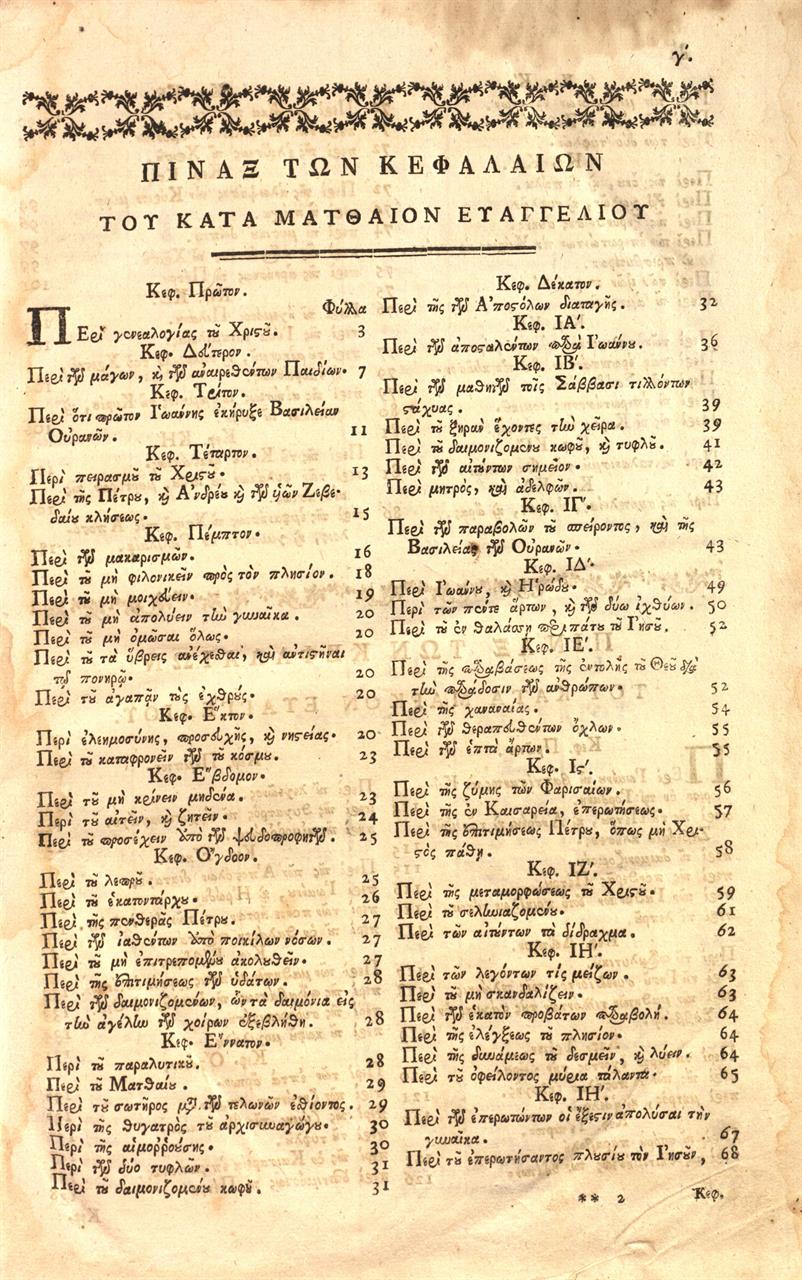 γ'.
ΠΙΝΑΞ ΤΩΝ ΚΕΦΑΛΑΙΩΝ
ΤΟΥ ΚΑΤΑ ΜΑΤΘΑΙΟΝ ΕΥΑΓΓΕΛΙΟΥ
Κεφ. Πρῶτον.
Φύλλα
ΠΕρὶ γενεαλογίας τοῦ Χριστοῦ. 3
Κεφ. Δεύτερον.
Περὶ τῶν μάγων, καὶ τῶν ἀναιρεθέντων Παιδίων. 7
Κεφ. Τρίτον.
Περὶ ὅτι πρῶτον Ἰωάννης ἐκήρυξε Βασιλείαν
Οὐρανῶν. 11
Κεφ. Τέταρτον.
Περὶ πειρασμοῦ τοῦ Χριστοῦ. 13
Περὶ τῆς Πέτρου, καὶ Ἀνδρέου καὶ τῶν ὑιῶν Ζεβε-
δαίου κλήσεως. 15
Κεφ. Πέμπτον.
Περὶ τῶν μακαρισμῶν. 16
Περὶ τοῦ μὴ φιλονικεῖν πρὸς τὸν πλησίον. 18
Περὶ τοῦ μὴ μοιχεύειν. 19
Περὶ τοῦ μὴ ἀπολύειν τὴν γυναῖκα. 20
Περὶ τοῦ μὴ ὀμῶσαι ὅλως. 20
Περὶ τοῦ τὰ ὕβρεις ἀνέχεσθαι, καὶ ἀντιστῆναι
τῷ πονηρῷ. 20
Περὶ τοῦ ἀγαπᾷν τοὺς ἐχθρούς. 20
Κεφ. Ἕκτον.
Περὶ ἐλεημοσύνης, προσευχῆς, καὶ νηστείας. 20
Περὶ τοῦ καταφρονεῖν τῶν τοῦ κόσμου. 23
Κεφ. Ἕβδομον.
Περὶ τοῦ μὴ κρίνειν μηδένα. 23
Περὶ τοῦ αἰτεῖν, καὶ ζητεῖν. 24
Περὶ τοῦ προσέχειν ὑπὸ τῶν ψευδοπροφητῶν. 25
Κεφ. Ὄγδοον.
Περὶ τοῦ λεπροῦ. 25
Περὶ τοῦ ἑκατοντάρχου. 26
Περὶ τῆς πενθερᾶς Πέτρου. 27
Περὶ τῶν ἰαθέντων ὑπὸ ποικίλων νόσων. 27
Περὶ τοῦ μὴ ἐπιτρεπομένου ἀκολουθεῖν. 27
Περὶ τῆς ἐπιτιμήσεως τῶν ὑδάτων. 28
Περὶ τῶν δαιμονιζομένων, ὧν τὰ δαιμόνια εἰς
τὴν ἀγέλην τῶν χοίρων ἐξεβλήθη. 28
Κεφ. Ἔννατον.
Περὶ τοῦ παραλυτικοῦ. 28
Περὶ τοῦ Ματθαίου. 29
Περὶ τοῦ σωτῆρος μετὰ τῶν τελωνῶν ἐσθίοντος. 29
Περὶ τῆς θυγατρὸς τοῦ ἀρχισυναγώγου. 30
Περὶ τῆς αἱμορρούσης. 30
Περὶ τῶν δύο τυφλῶν. 31
Περὶ τοῦ δαιμονιζομένου κωφοῦ. 31
Κεφ. Δέκατον.
Περὶ τῆς τῶν Ἀποστόλων διαταγῆς. 32
Κεφ. ΙΑ'.
Περὶ τῶν ἀποσταλέντων παρὰ Ἰωάννου. 36
Κεφ. ΙΒ'.
Περὶ τῶν μαθητῶν τοῖς Σάββασι τιλλόντων
στάχυας. 39
Περὶ τοῦ ξηρὰν ἔχοντες τὴν χεῖρα. 39
Περὶ τοῦ δαιμονιζομένου κωφοῦ, καὶ τυφλοῦ. 41
Περὶ τῶν αἰτούντων σημεῖον. 42
Περὶ μητρὸς, καὶ ἀδελφῶν. 43
Κεφ. ΙΓ'.
Περὶ τῶν παραβολῶν τοῦ σπείροντος, καὶ τῆς
Βασιλείας τῶν Οὐρανῶν. 43
Κεφ. ΙΔ'.
Περὶ Ἰωάννου, καὶ Ἡρώδου. 49
Περὶ τῶν πέντε ἄρτων, καὶ τῶν δύω ἰχθύων. 50
Περὶ τοῦ ἐν θαλάσσῃ περιπάτου τοῦ Ἰησοῦ. 52
Κεφ. ΙΕ'.
Περὶ τῆς παραβάσεως τῆς ἐντολῆς τοῦ Θεοῦ διὰ
τὴν παράδοσιν τῶν ἀνθρώπων. 52
Περὶ τῆς χαναναίας. 54
Περὶ τῶν θεραπευθέντων ὄχλων. 55
Περὶ τῶν ἑπτὰ ἄρτων. 55
Κεφ. Ις'.
Περὶ τῆς ζύμης τῶν Φαρισαίων. 56
Περὶ τῆς ἐν Καισαρείᾳ, ἐπερωτήσεως. 57
Περὶ τῆς ἐπιτιμήσεως Πέτρου, ὅπως μὴ Χρι-
στὸς πάθῃ. 58
Κεφ. ΙΖ'.
Περὶ τῆς μεταμορφώσεως τοῦ Χριστοῦ. 59
Περὶ τοῦ σεληνιαζομένου. 61
Περὶ τῶν αἰτούντων τὰ δίδραχμα. 62
Κεφ. ΙΗ'.
Περὶ τῶν λεγόντων τίς μείζων. 63
Περὶ τοῦ μὴ σκανδαλίζειν. 63
Περὶ τῶν ἑκατὸν προβάτων παραβολή. 64
Περὶ τῆς ἐλέγξεως τοῦ πλησίον. 64
Περὶ τῆς δυνάμεως τοῦ δεσμεῖν, καὶ λύειν. 64
Περὶ τοῦ ὀφείλοντος μύρια τάλαντα. 65
Κεφ. ΙΗ'.
Περὶ τῶν ἐπερωτώντων οἱ ἔξεστιν ἀπολύσαι τὴν
γυναῖκα. 67
Περὶ τοῦ ἐπερωτήσαντος πλουσίου τὸν Ἰησοῦν, 68
** 2 Κεφ.